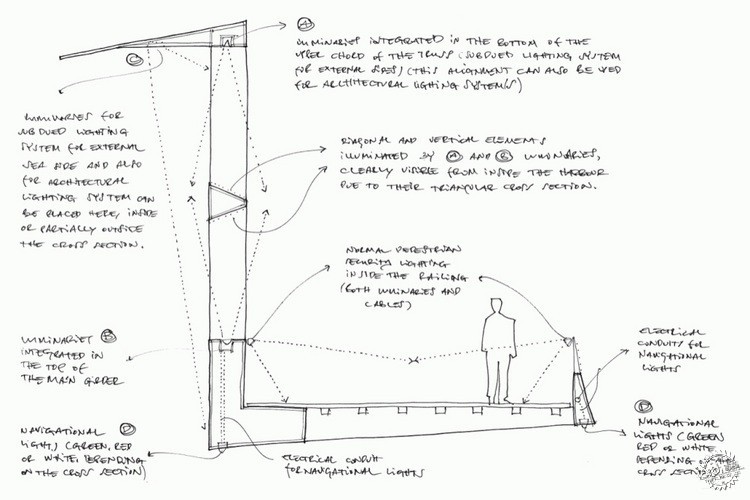 A
LUMINARIES INTEGRATED IN THE BOTTOM OF THE
UPPER CHORD OF THE TRUSS (SUBDUED LIGHTING SYSTEM
FOR EXTERNAL SIDES) (THIS ALIGNMENT CAN ALSO BE USED
FOR ARCHITECTURAL LIGHTING SYSTEM/S)
C
LUMINARIES FOR
SUBDUED LIGHTING
SYSTEM FOR EXTERNAL
SEA SIDE AND ALSO
FOR ARCHITECTURAL
LIGHTING SYSTEM CAN
BE PLACED HERE, INSIDE
OR PARTIALLY OUTSIDE
THE CROSS SECTION.
DIAGONAL AND VERTICAL ELEMENTS
ILLUMINATED BY A AND B LUMINARIES,
CLEARLY VISIBLE FROM INSIDE THE HARBOUR
DUE TO THEIR TRIANGULAR CROSS SECTION.
NORMAL PEDESTRIAN
SECURITY LIGHTING
INSIDE THE RAILING
(BOTH LUMINARIES AND
CABLES)
LUMINARIES B
INTEGRATED IN
THE TOP OF
THE MAIN GIRDER
ELECTRICAL
CONDUITS FOR
NAVIGATIONAL
LIGHTS
D
NAVIGATIONAL
LIGHTS (GREEN, RED
OR WHITE, DEPENDING
ON THE CROSS SECTION)
ELECTRICAL CONDUIT
FOR NAVIGATIONAL LIGHTS
D
NAVIGATIONAL
LIGHTS (GREEN
RED OR WHITE
DEPENDING ON THE
CROSS SECTION)